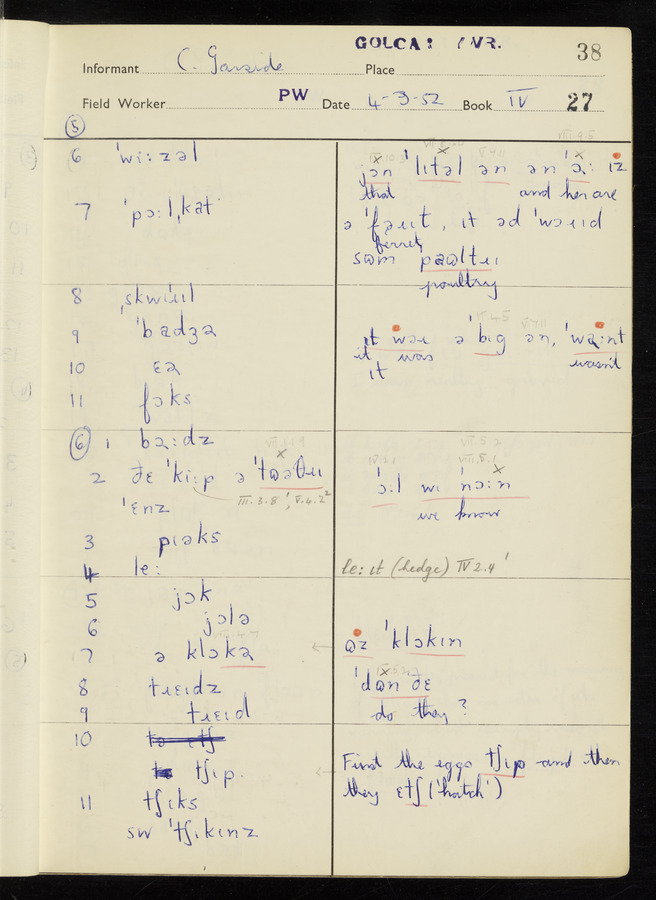 GOLCAR
38
Informant C. Garside Place
Field Worker PW Date 4-3-52 Book IV 27
5
6 ˈwiːzəl
7 ˈpɔːlˌkat
8 ˌskwɪɹɪl
9 ˈbadʒə
10 ɛə
11 fɔks
6 1 bəːdz
2 ðɛ ˈkiːp ə
III.3.8
ˈɛnz
3 pɪəks
4 leː
5 jɔk
6 jɔlə
7 ə klɔkə
8 tɹɛɪdz
9 tɹɛɪd
10
tʃɪp.
11 tʃɪks
sw ˈtʃɪkɪnz
jɔn ˈlɪtəl ən ən
that and hen are
ə ˈfəɹɪt, ɪt əd
ferret
sʊm
poultry
ɪt wəɹ ə ˈbɪg ən,
it was wasn't
it
ɔːl wɪ nɔːn
we know
leːɪt (hedge) IV 2.4
ʊz ˈklɔkɪn
ˈdʊn ðɛ
do they?
First the eggs tʃɪp and then
they ɛtʃ ('hatch')